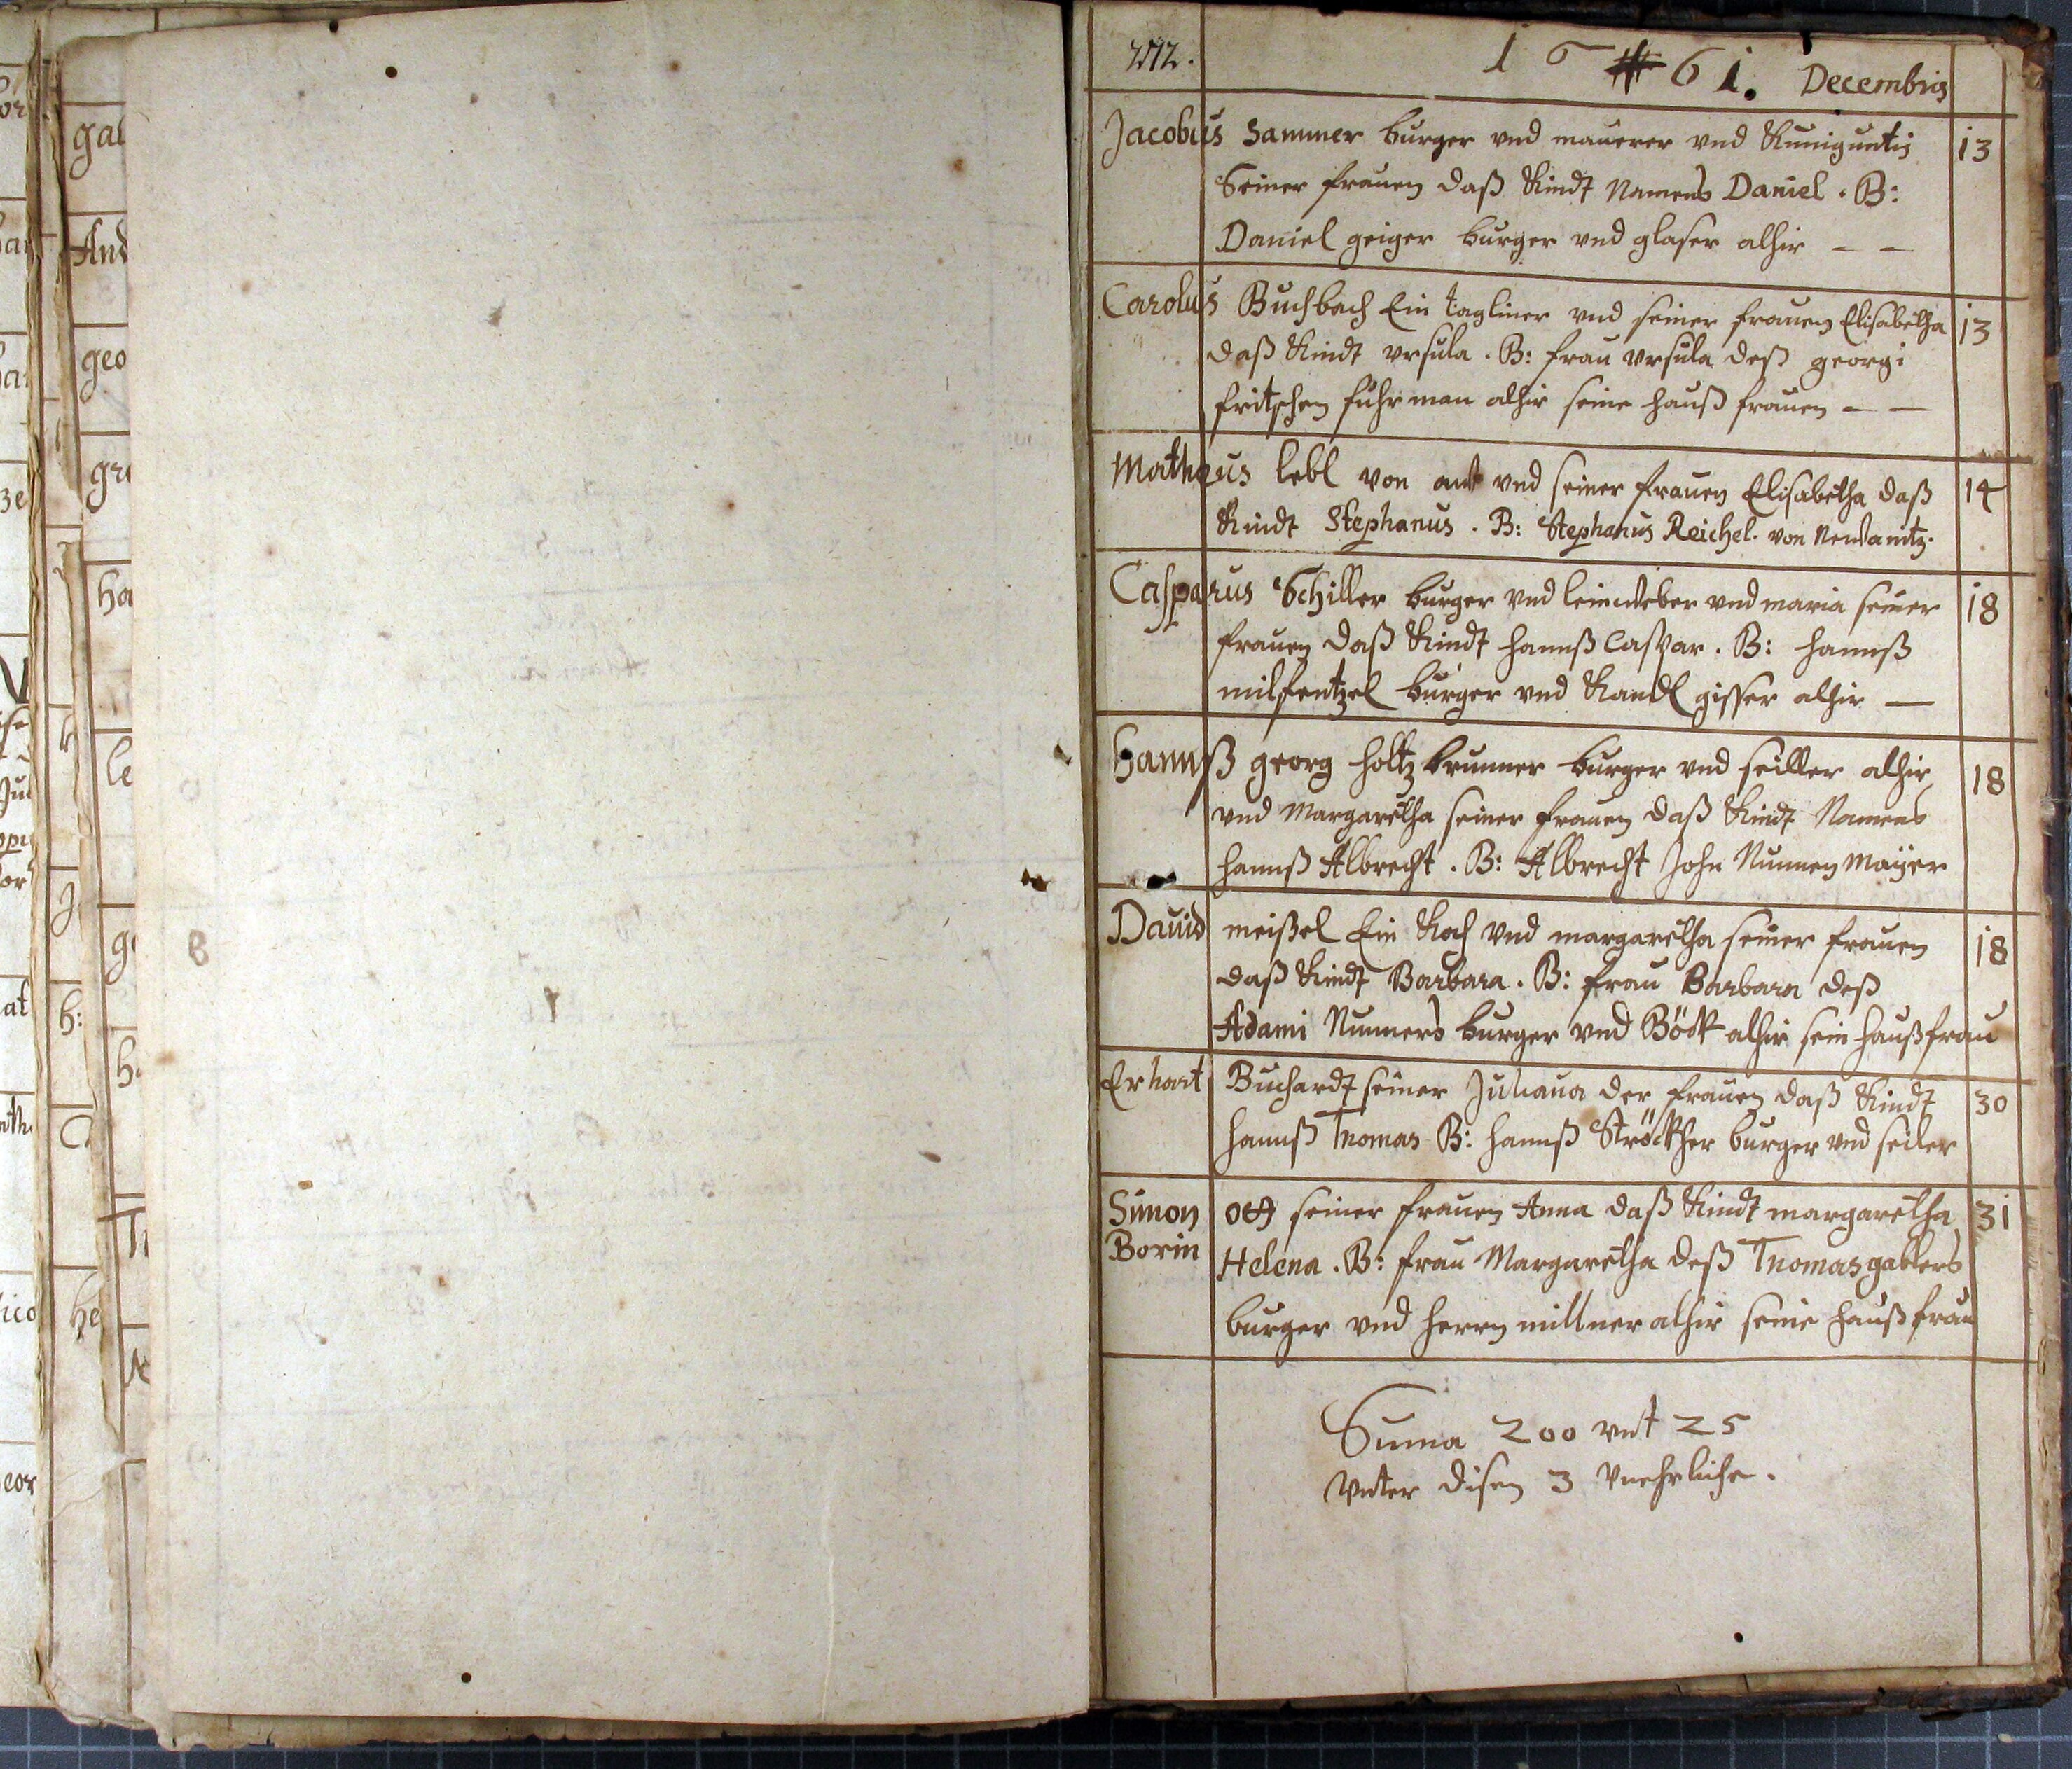 212. 16 61. Decembris
Jacobus Sammer burger vnd maurer vnd Kuniguntis 13
Seiner frauen daß Kindt Namens Daniel. B:
Daniel geiger burger vnd glaser alhir – –
Carolus Buchbach Ein tagliner vnd seiner frauen Elisabetha 13
daß Kindt vrsula. B: frau vrsula deß georgi
fritschen fuhrman alhir seine hauß frauen – –
Mathaus lebl von vnd seiner frauen Elisabetha daß 14
Kindt Stephanus. B: Stephanus Reichel. von
Casparus Schiller burger vnd leinweber vnd maria seiner 18
frauen daß Kindt hannß Caspar. B: hannß
milfentzel burger vnd Kandl gisser alhir —
Hannß georg holtzbrunner burger vnd seiller alhir 18
vnd Margaretha seiner frauen daß Kindt Namens
hannß Albrecht. B: Albrecht John Nunnen Mayer
Dauid meißel Ein Koch vnd margaretha seiner frauen 18
daß Kindt Barbara. B: frau Barbara deß
Adami Nunners burger vnd Böck alhir sein haußfrau
Erhart Buchardt seiner Juliana der frauen daß Kindt 30
hannß Thomas B: hannß Ströckher burger vnd seiler
Simon ott seiner frauen Anna daß Kindt margaretha 31
Borin Helena. B: frau Margaretha deß Thomas gablers
burger vnd herrn millner alhir seine haußfrau
Suma 200 vnt 25
Vnter disen 3 Vnehrliche.